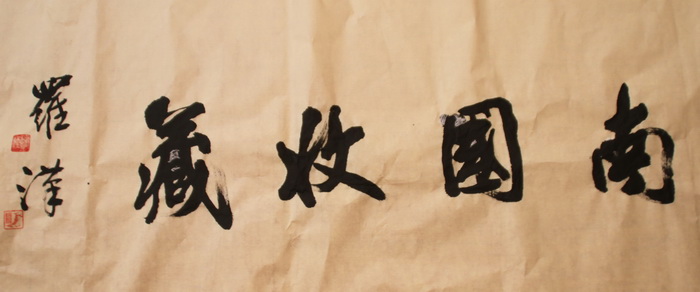 南國收藏
羅漢